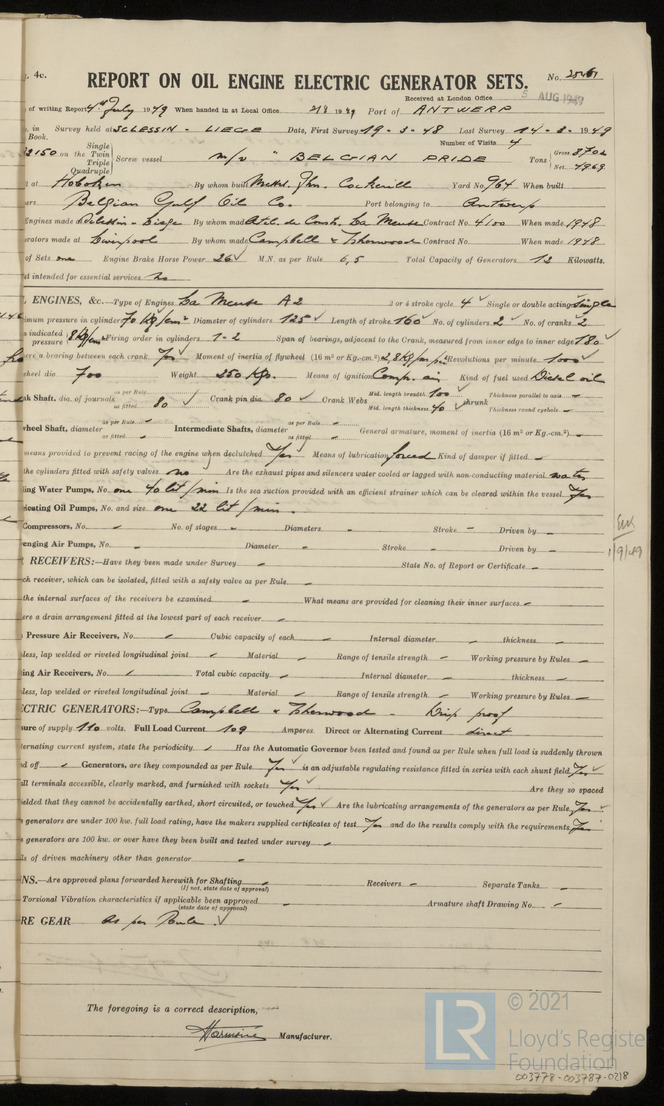 4c. REPORT ON OIL ENGINE ELECTRIC GENERATOR SETS. No.
Received at London Office AUG 1949
of writing Report 4th July 1949 When handed in at Local Office 2/8 1949 Port of ANTWERP
in Survey held at SCLESSIN - LIEGE Date, First Survey 19-3-48 Last Survey 1949
Book. Number of Visits 4
2150 on the Single Twin Triple Quadruple Screw vessel m/v "BELGIAN PRIDE Tons Gross 8702 Net 4969
at Hoboken By whom built John Cockerill Yard No. 764 When built
Belgian Gulf Oil Co. Port belonging to Antwerp
Engines made at Sclessin - Liege By whom made Atel. de Constr. La Meuse Contract No. 4100 When made 1948
rators made at Liverpool By whom made Campbell & Isherwood Contract No. When made 1948
of Sets one Engine Brake Horse Power 26 M.N. as per Rule 6,5 Total Capacity of Generators 12 Kilowatts.
t intended for essential services No
ENGINES, &c.—Type of Engines La Meuse A2 2 or 4 stroke cycle 4 Single or double acting Single
imum pressure in cylinders 70 Kg/cm² Diameter of cylinders 125 Length of stroke 160 No. of cylinders 2 No. of cranks 2
indicated pressure 8 Kg/cm² Firing order in cylinders 1-2 Span of bearings, adjacent to the Crank, measured from inner edge to inner edge 180
ere a bearing between each crank Yes Moment of inertia of flywheel (16 m² or Kg.-cm.²) 2,8 Revolutions per minute 1000
wheel dia 700 Weight 250 Kgs. Means of ignition Comp. air Kind of fuel used Diesel oil
nk Shaft, dia. of journals as per Rule as fitted 80 Crank pin dia. 80 Crank Webs Mid. length breadth 100 Mid. length thickness 40 shrunk Thickness parallel to axis - Thickness round eyehole -
wheel Shaft, diameter as per Rule - as fitted - Intermediate Shafts, diameter as per Rule as fitted General armature, moment of inertia (16 m² or Kg.-cm.²) -
means provided to prevent racing of the engine when declutched Yes Means of lubrication forced Kind of damper if fitted -
the cylinders fitted with safety valves no Are the exhaust pipes and silencers water cooled or lagged with non-conducting material water
ling Water Pumps, No. one 40 lit/min Is the sea suction provided with an efficient strainer which can be cleared within the vessel Yes
icating Oil Pumps, No. and size one 22 lit/min.
Compressors, No. - No. of stages - Diameters - Stroke - Driven by -
enging Air Pumps, No. - Diameter - Stroke - Driven by -
1/9/49
RECEIVERS:—Have they been made under Survey - State No. of Report or Certificate -
ch receiver, which can be isolated, fitted with a safety valve as per Rule -
the internal surfaces of the receivers be examined - What means are provided for cleaning their inner surfaces -
ere a drain arrangement fitted at the lowest part of each receiver -
Pressure Air Receivers, No. - Cubic capacity of each - Internal diameter - thickness -
less, lap welded or riveted longitudinal joint - Material - Range of tensile strength - Working pressure by Rules -
ing Air Receivers, No. - Total cubic capacity - Internal diameter - thickness -
less, lap welded or riveted longitudinal joint - Material - Range of tensile strength - Working pressure by Rules -
CTRIC GENERATORS:—Type Campbell & Isherwood - Drip proof
sure of supply 110 volts. Full Load Current 109 Amperes. Direct or Alternating Current direct
ternating current system, state the periodicity - Has the Automatic Governor been tested and found as per Rule when full load is suddenly thrown
nd off - Generators, are they compounded as per Rule Yes is an adjustable regulating resistance fitted in series with each shunt field Yes
all terminals accessible, clearly marked, and furnished with sockets Yes Are they so spaced
ielded that they cannot be accidentally earthed, short circuited, or touched Yes Are the lubricating arrangements of the generators as per Rule Yes
generators are under 100 kw. full load rating, have the makers supplied certificates of test Yes and do the results comply with the requirements Yes
generators are 100 kw. or over have they been built and tested under survey -
ls of driven machinery other than generator -
NS.—Are approved plans forwarded herewith for Shafting - Receivers - Separate Tanks -
(If not, state date of approval)
Torsional Vibration characteristics if applicable been approved - Armature shaft Drawing No. -
(state date of approval)
RE GEAR As per Rule.
The foregoing is a correct description,
Manufacturer.
LR © 2021
Lloyd's Register
Foundation
003778-003787-0218